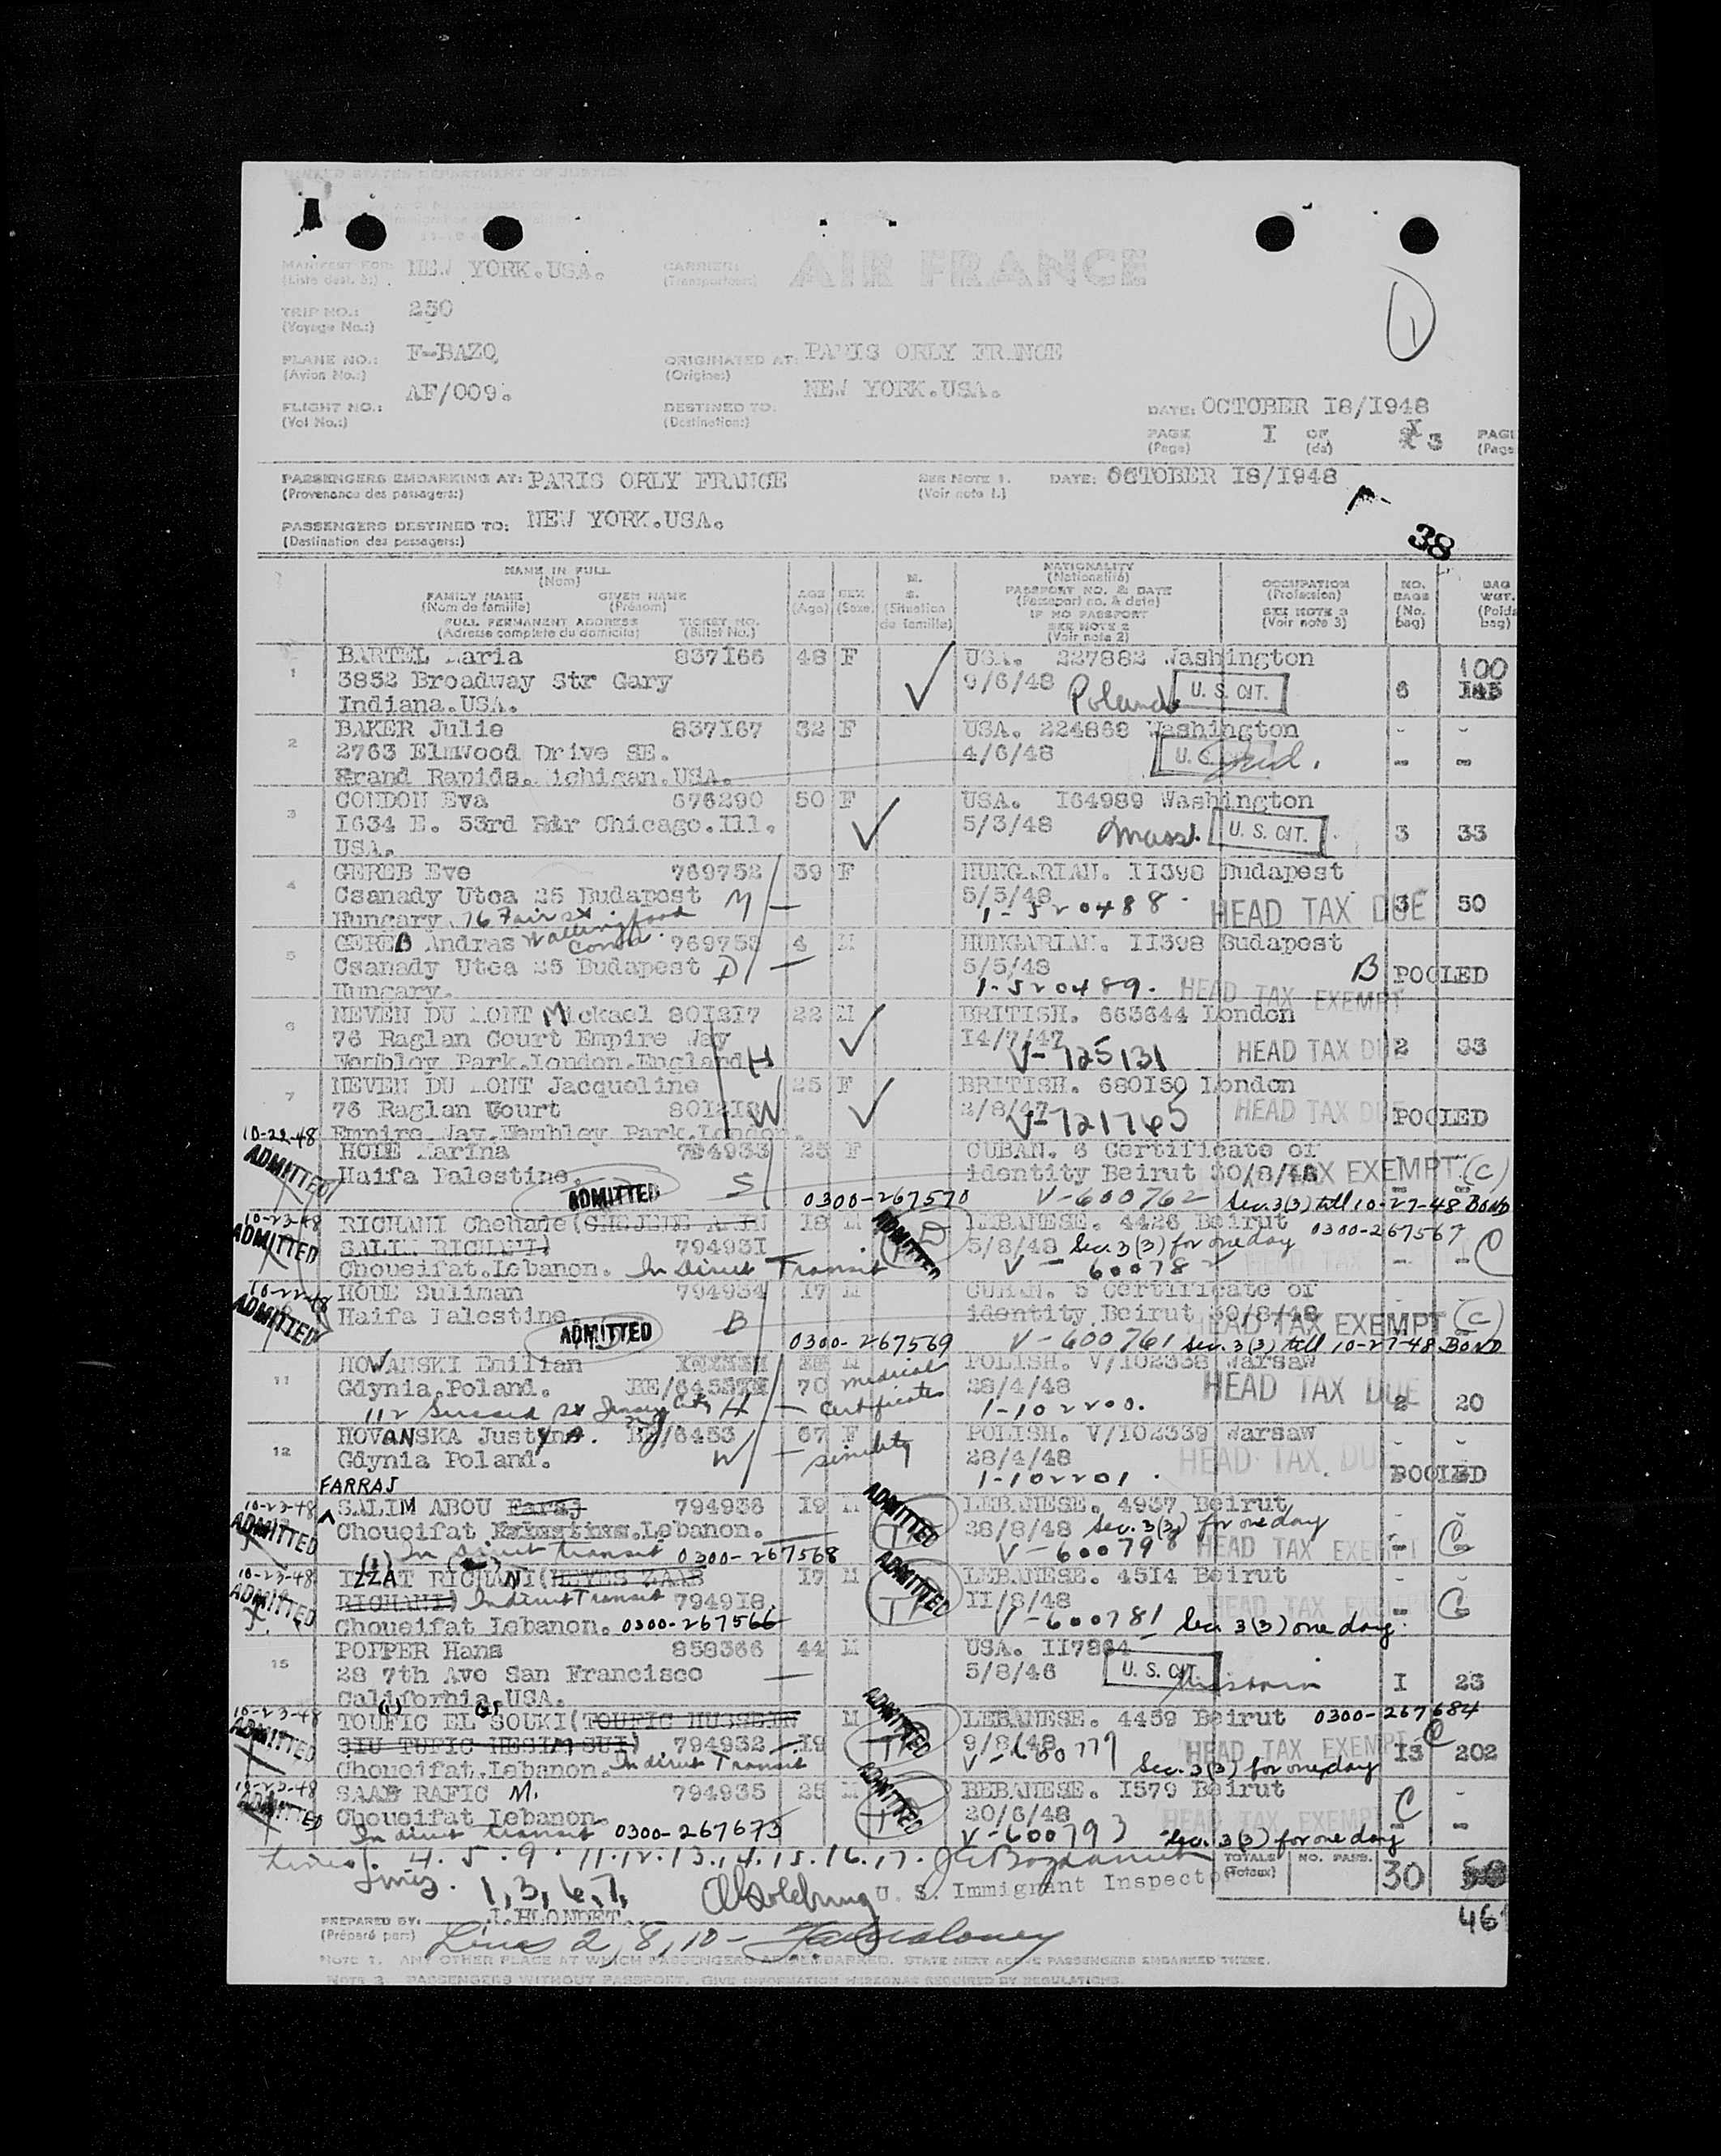 UNITED STATES DEPARTMENT OF JUSTICE
MANIFEST FOR: NEW YORK.USA. CARRIER: AIR FRANCE
(Liste dest. à:) (Transporteur:)
TRIP NO.: 250
(Voyage No.:)
PLANE NO.: F-BAZQ ORIGINATED AT: PARIS ORLY FRANCE
(Avion No.:) (Origine:)
FLIGHT NO.: AF/009. DESTINED TO: NEW YORK.USA.
(Vol No.:) (Destination:)
DATE: OCTOBER I8/I948
PAGE I OF 3 PAGE
(Page) (de) (Page
PASSENGERS EMBARKING AT: PARIS ORLY FRANCE SEE NOTE 1. DATE: OCTOBER I8/I948
(Provenance des passagers:) (Voir note 1.)
PASSENGERS DESTINED TO: NEW YORK.USA.
(Destination des passagers:)
38
NAME IN FULL
(Nom)
FAMILY NAME GIVEN NAME
(Nom de famille) (Prénom)
FULL PERMANENT ADDRESS TICKET NO.
(Adresse complete du domicile) (Billet No.)
AGE
(Age)
SEX
(Sexe)
M.
S.
(Situation
de famille)
NATIONALITY
(Nationalité)
PASSPORT NO. & DATE
(Passeport no. & date)
IF NO PASSPORT
SEE NOTE 2
(Voir note 2)
OCCUPATION
(Profession)
SEE NOTE 3
(Voir note 3)
NO.
BAGS
(No.
bag)
BAG
WGT.
(Poids
bag)
1 BARTEL Maria 837I66 48 F USA. 227882 Washington 100
3852 Broadway Str Gary 9/6/48 Poland U. S. CIT. 6 I45
Indiana.USA.
2 BAKER Julie 837I67 32 F USA. 224868 Washington - -
2763 Elmwood Drive SE. 4/6/48 - -
Grand Rapids.Michigan.USA.
3 CONDON Eva 676290 50 F USA. I64989 Washington
I634 E. 53rd Str Chicago.Ill. 5/3/48 Mass. U. S. CIT. 3 33
USA.
4 GEREB Eve 769752 39 F HUNGARIAN. II398 Budapest
Csanady Utca 25 Budapest M 5/5/48 3 50
Hungary. 76 Fair St Wallingford Conn. 1-520488. HEAD TAX DUE
5 GEREB Andras 769753 4 M HUNGARIAN. II398 Budapest
Csanady Utca 25 Budapest D 5/5/48 B POOLED
Hungary. 1-520489. HEAD TAX EXEMPT
6 NEVEN DU MONT Mickael 80I2I7 22 M BRITISH. 663644 London
76 Raglan Court Empire Way 14/7/47 HEAD TAX DUE 2 33
Wembley Park.London.England H V-725131
7 NEVEN DU MONT Jacqueline 25 F BRITISH. 680I50 London
76 Raglan Court 80I2I8 W 2/8/47 V-721765 HEAD TAX DUE POOLED
Empire Way.Wembley Park.London.
10-22-48 Marina 794933 25 F CUBAN. 6 Certificate of
ADMITTED Haifa Palestine. identity Beirut 30/8/48 TAX EXEMPT (C)
ADMITTED S 0300-267570 V-600762 Sec. 3(3) till 10-27-48 BOND
10-23-48 RICHANI Chehade I8 M LEBANESE. 4426 Beirut 0300-267567
ADMITTED SALIM RICHANI) 79493I ADMITTED 5/8/48 Sec. 3(3) for one day - - C
Choueifat.Lebanon. In Direct Transit V-60078 HEAD TAX
10-22-48 Suliman 794934 I7 M CUBAN. 5 Certificate of
ADMITTED Haifa Palestine. identity Beirut 30/8/48 HEAD TAX EXEMPT (C)
ADMITTED B 0300-267569 V-600761 Sec. 3(3) till 10-27-48 BOND
11 NOWANSKI Emilian M medical POLISH. V/I02338 Warsaw
Gdynia.Poland. 70 certificate 28/4/48 HEAD TAX DUE
Jersey City H 1-102200. 2 20
12 Justyna. 67 F POLISH. V/I02339 Warsaw - -
Gdynia Poland. W senility 28/4/48 HEAD TAX DUE
1-102201. POOLED
FARRAJ
10-23-48 SALIM ABOU Faraj 794936 I9 M ADMITTED LEBANESE. 4937 Beirut
ADMITTED Choueifat Lebanon. 28/8/48 Sec. 3(3) for one day - C
In direct transit 0300-267568 V-600798 HEAD TAX EXEMPT
10-23-48 IZZAT RICHANI I7 M ADMITTED LEBANESE. 45I4 Beirut
ADMITTED RICHANI) In direct Transit 7949I8. II/8/48 HEAD TAX EXEMPT - C
Choueifat Lebanon. 0300-267566 V-600781 Sec. 3(3) one day.
15 POPPER Hans 858366 44 M USA. II7864
28 7th Ave San Francisco 5/8/46 U. S. CIT. I 23
California.USA.
10-23-48 TOUFIC EL SOUKI M ADMITTED LEBANESE. 4459 Beirut 0300-267684
ADMITTED 794932 I9 9/8/48 HEAD TAX EXEMPT C I3 202
Choueifat.Lebanon. In direct Transit V-600779 Sec. 3(3) for one day
10-23-48 SAAB RAFIC M. 794935 25 M ADMITTED LEBANESE. I579 Beirut C -
ADMITTED Choueifat Lebanon. 20/6/48 HEAD TAX EXEMPT -
In direct transit 0300-267673 V-600793 Sec. 3(3) for one day
Lines. 4. 5. 9. 11. 12. 13. 14. 15. 16. 17. TOTALS (Totaux) NO. PASS. 30
Lines. 1, 3, 6, 7, U. S. Immigrant Inspector
461
PREPARED BY: J.BLONDET.
(Préparé par:) Lines 2, 8, 10 -
NOTE 1. ANY OTHER PLACE AT WHICH PASSENGERS ARE EMBARKED. STATE NEXT ABOVE PASSENGERS EMBARKED THERE.
NOTE 2. PASSENGERS WITHOUT PASSPORT. GIVE INFORMATION HEREON AS REQUIRED BY REGULATIONS.